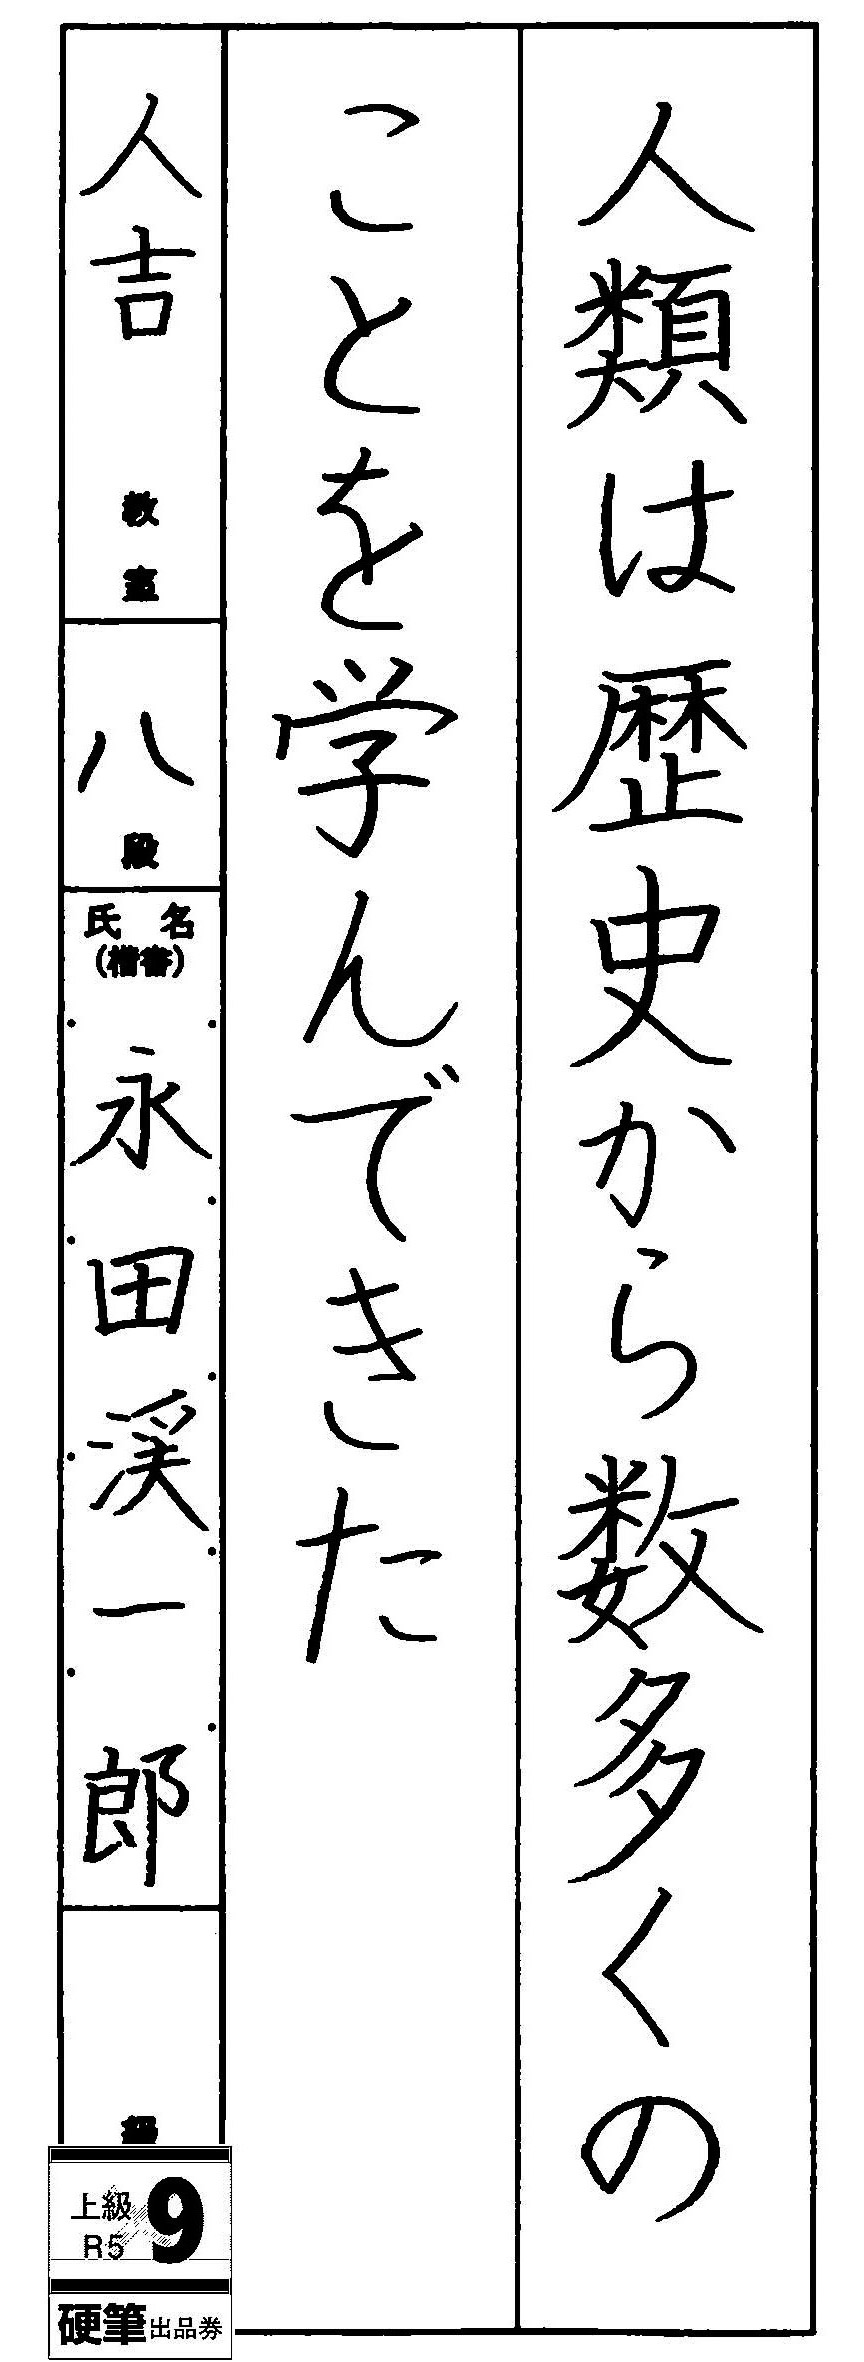 人類は歴史から数多くの
ことを学んできた
人吉 教室
八 段
氏名
(楷書)
永田渓一郎
上級
R5
9
硬筆出品券